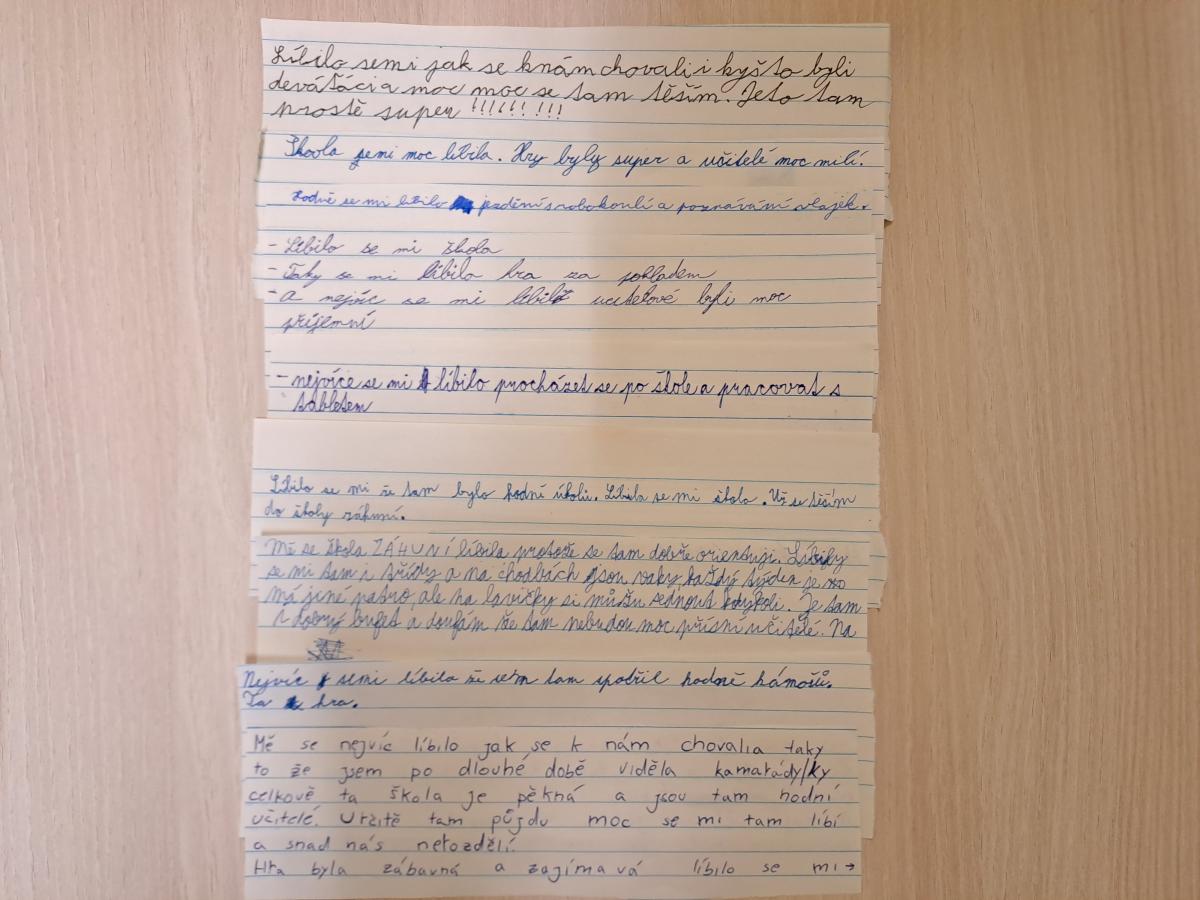 Líbilo semi jak se knám chovali i kyšto byli
deváťáci a moc moc se tam těším. Jeto tam
prostě super !!!!!! !!!
Škoola semi moc líbila. Hry byly super a učitelé moc milí.
Hodně se mi líbilo jezdění s robokoulí a poznávání vlajek.
- Líbilo se mi škola
- Taky se mi líbila hra za pokladem
- a nejvíc se mi líbilo ucitelové byli moc
příjemní
- nejvíce se mi líbilo procházet se po škole a pracovat s
tabletem
Líbilo se mi že tam bylo hodní úkolu. Libila se mi škola. Už se těším
do školy záhuní.
Mě se škola ZÁHUNÍ líbila protože se tam dobře orientuji. Líbily
se mi tam i třídy a na chodbách jsou vaky, každý týden je
má jiné patro, ale na lavičky si můžu sednout kdykoli. Je tam
i dobrý bufet a doufám že tam nebudou moc přísní učitelé. Na
Nejvíc semi líbilo že sem tam spatřil hodně kámošů.
Ta hra.
Mě se nejvíc líbilo jak se k nám chovali a taky
to že jsem po dlouhé době viděla kamarády/ky
celkově ta škola je pěkná a jsou tam hodní
učitelé. Určitě tam půjdu moc se mi tam líbí
a snad nás nerozdělí.
Hra byla zábavná a zajímavá líbilo se mi →